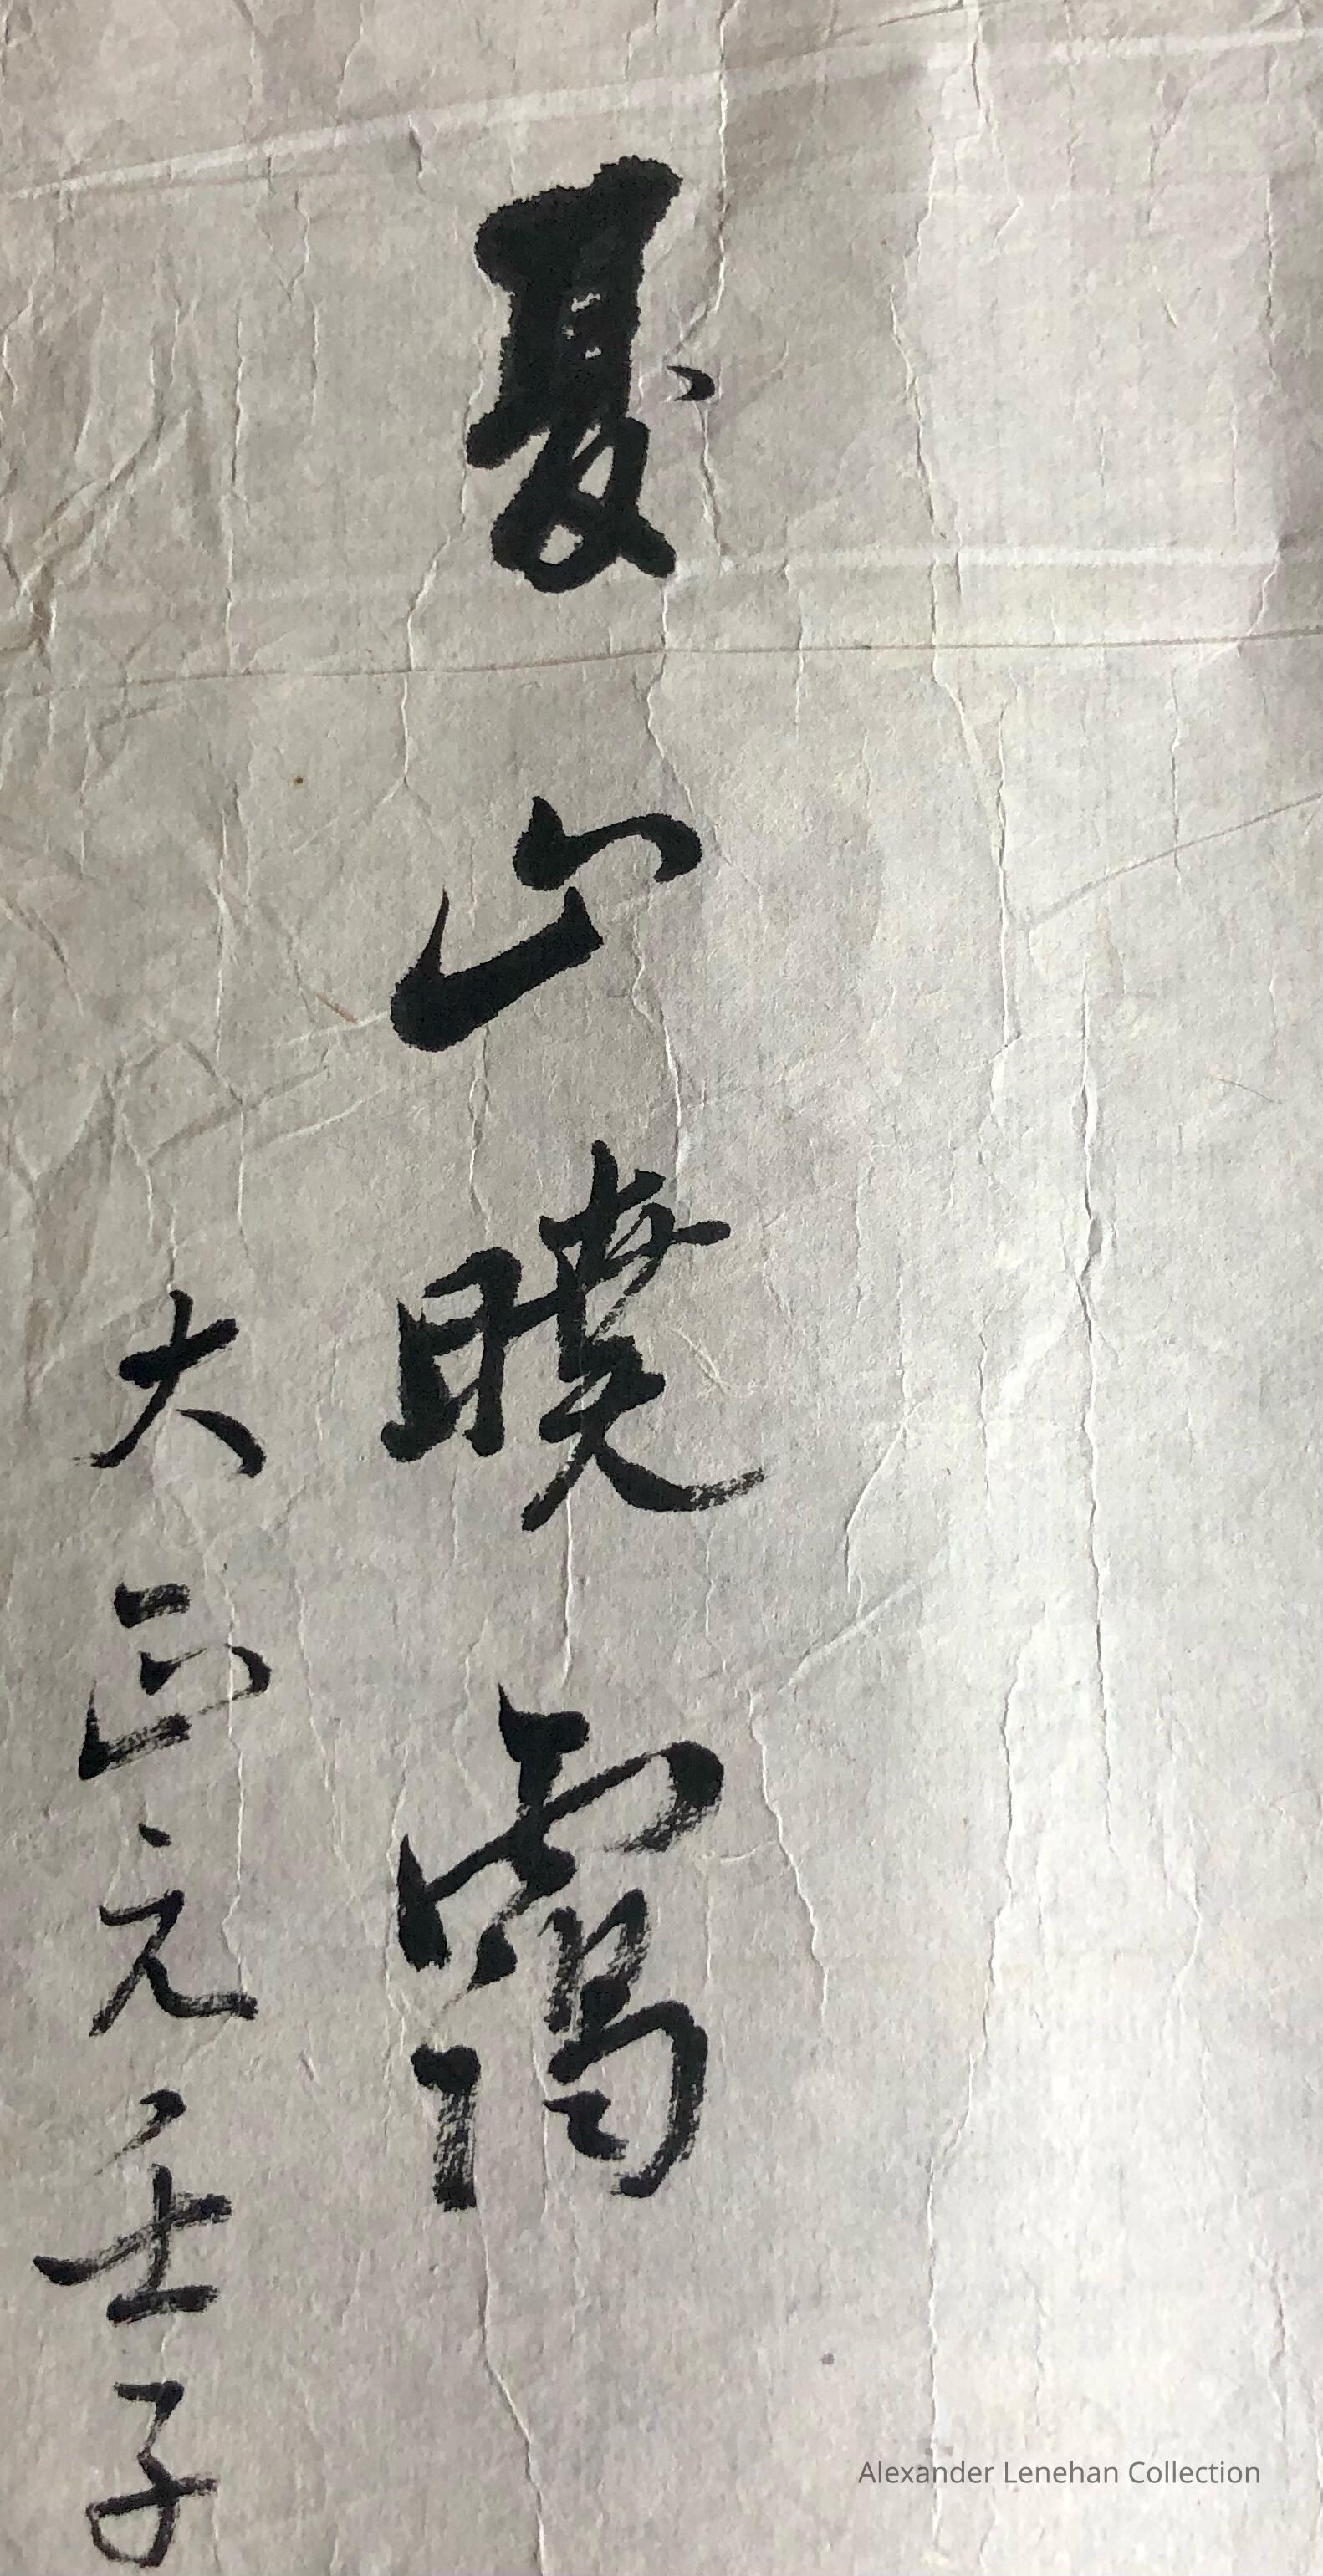 夏山曉靄
大正元壬子
Alexander Lenehan Collection